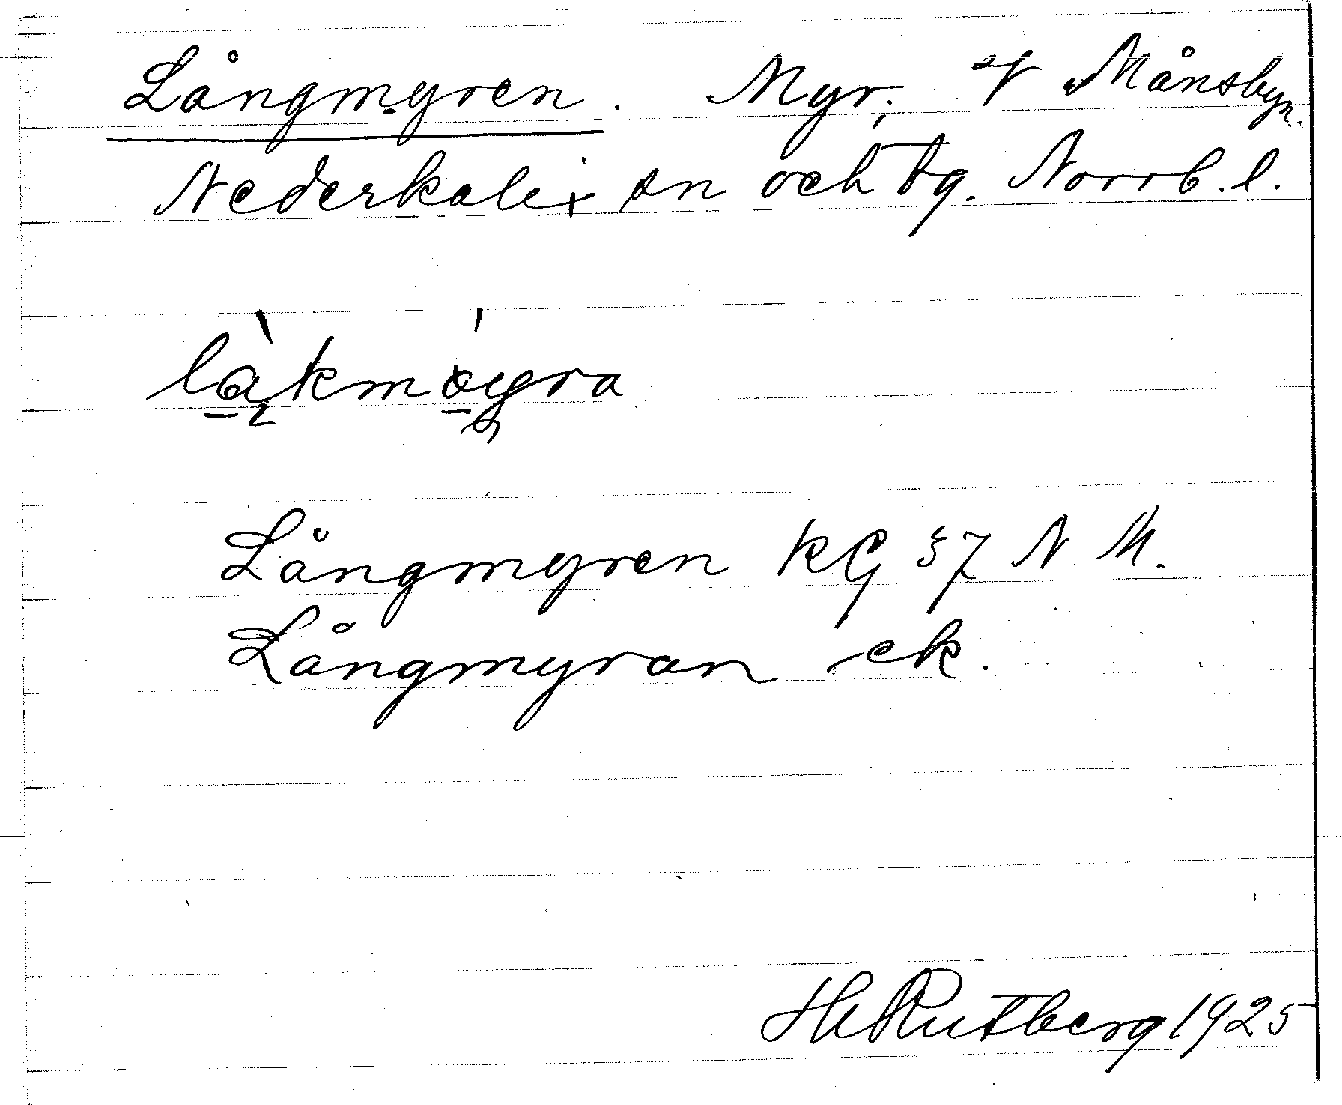 Långmyren. Myr. Månsbyn.
Nederkalix sn och tg. Norrb. l.
Långmyren KG 37 N M.
Långmyran ek.
H Rutberg 1925